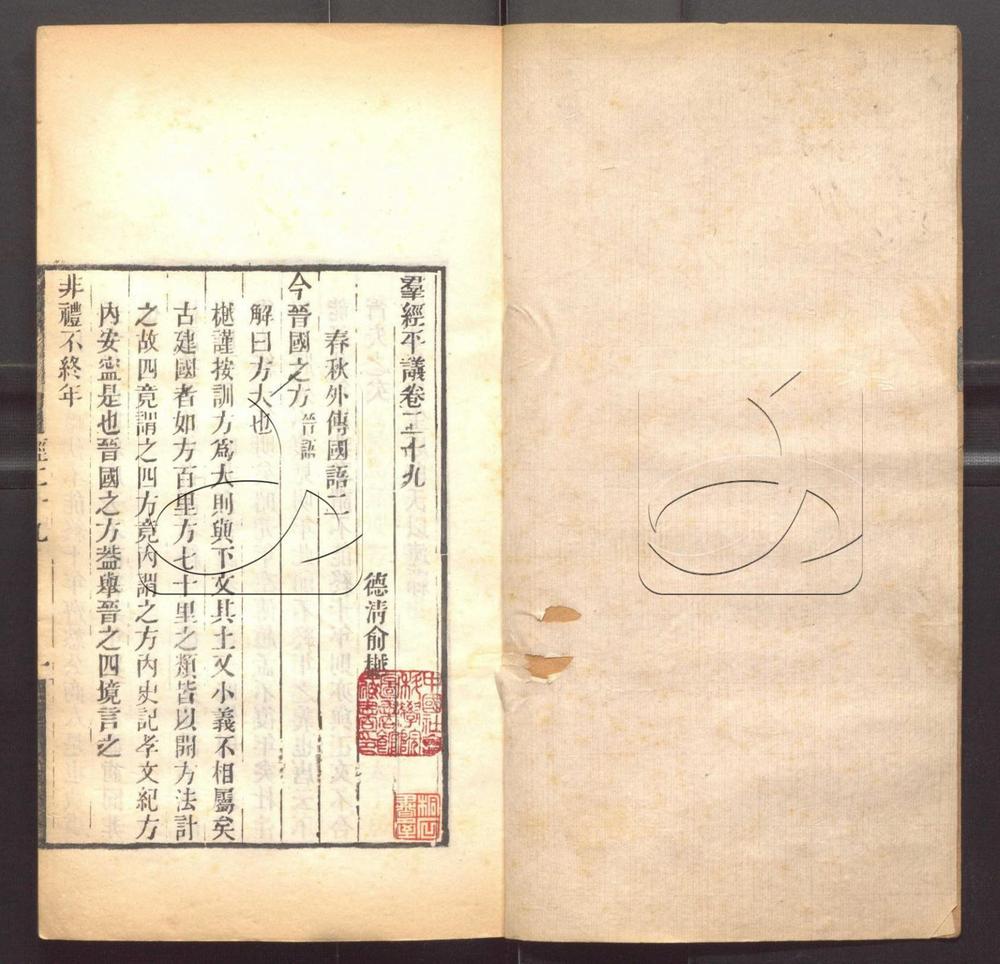 羣經平議卷二十九
德淸俞樾
春秋外傳國語二
今晉國之方晉語
解曰方大也
樾謹按訓方爲大則與下文其土又小義不相屬矣
古建國者如方百里方七十里之類皆以開方法計
之故四竟謂之四方竟内謂之方内史記孝文紀方
内安寍是也晉國之方葢舉晉之四境言之
非禮不終年
經二十九
一
中國社會科學院圖書館藏書印